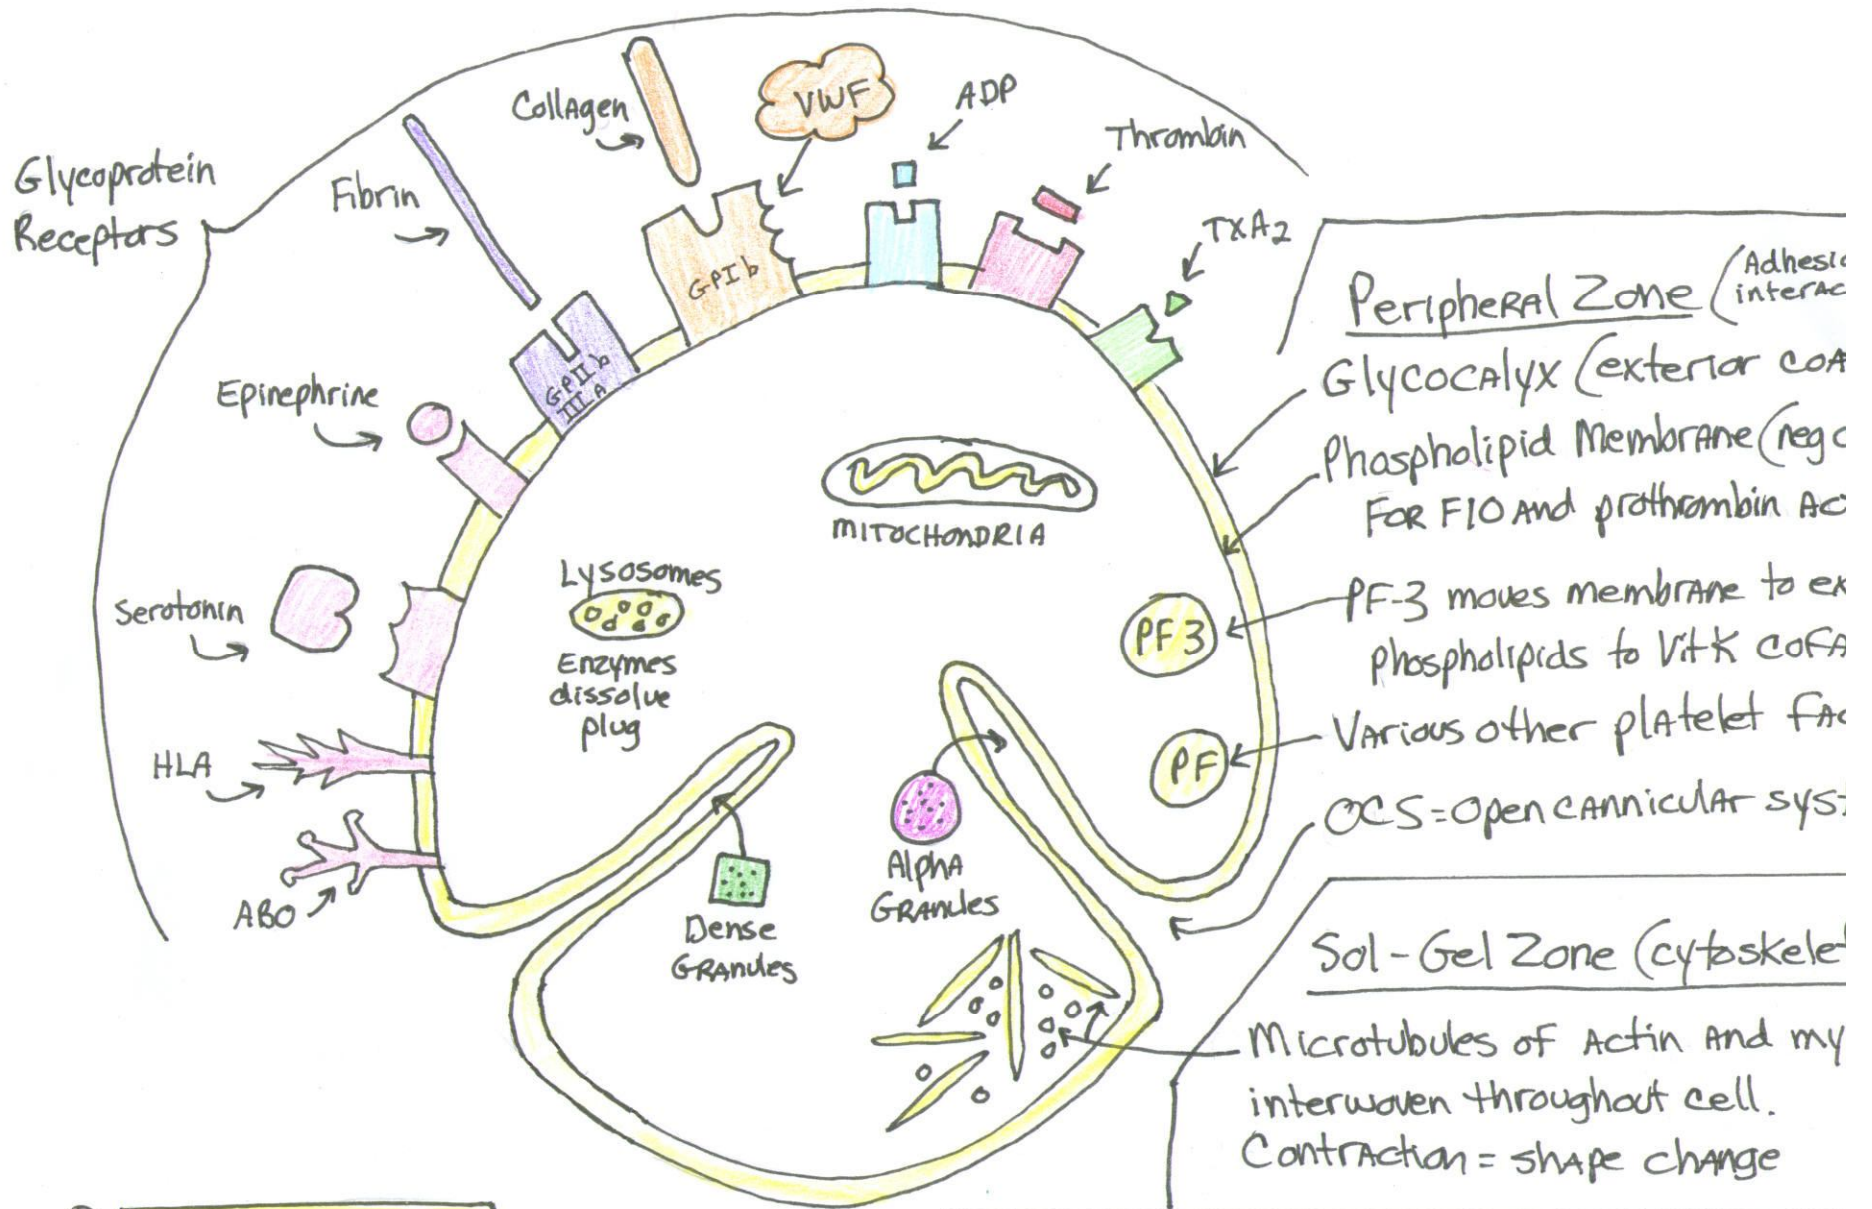 Glycoprotein
Receptors
Fibrin
Collagen
VWF
ADP
Thrombin
TXA2
Epinephrine
Serotonin
HLA
ABO
GPIIb
IIIA
GPIb
MITOCHONDRIA
Lysosomes
Enzymes
dissolve
plug
PF3
PF
Dense
GRANules
AlphA
GRANules
PeripheRAl Zone (
GlycocAlyx (exterior
Phospholipid MembrAne (neg
FOR F10 And prothrombin
PF-3 moves membrAne to
phospholipids to Vit K
VArious other plAtelet
OCS = Open cAnniculAr
Sol-Gel Zone (
Microtubules of Actin And
interwoven throughout cell.
ContrAction = shApe chAnge